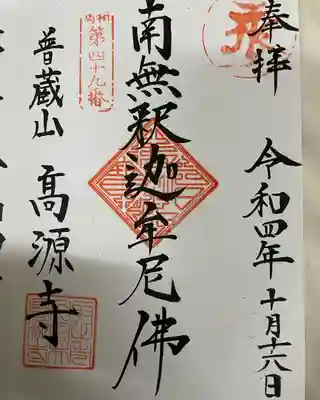 奉拝
令和四年十月十六日
南無釈迦牟尼佛
第四十九番
普蔵山
高源寺